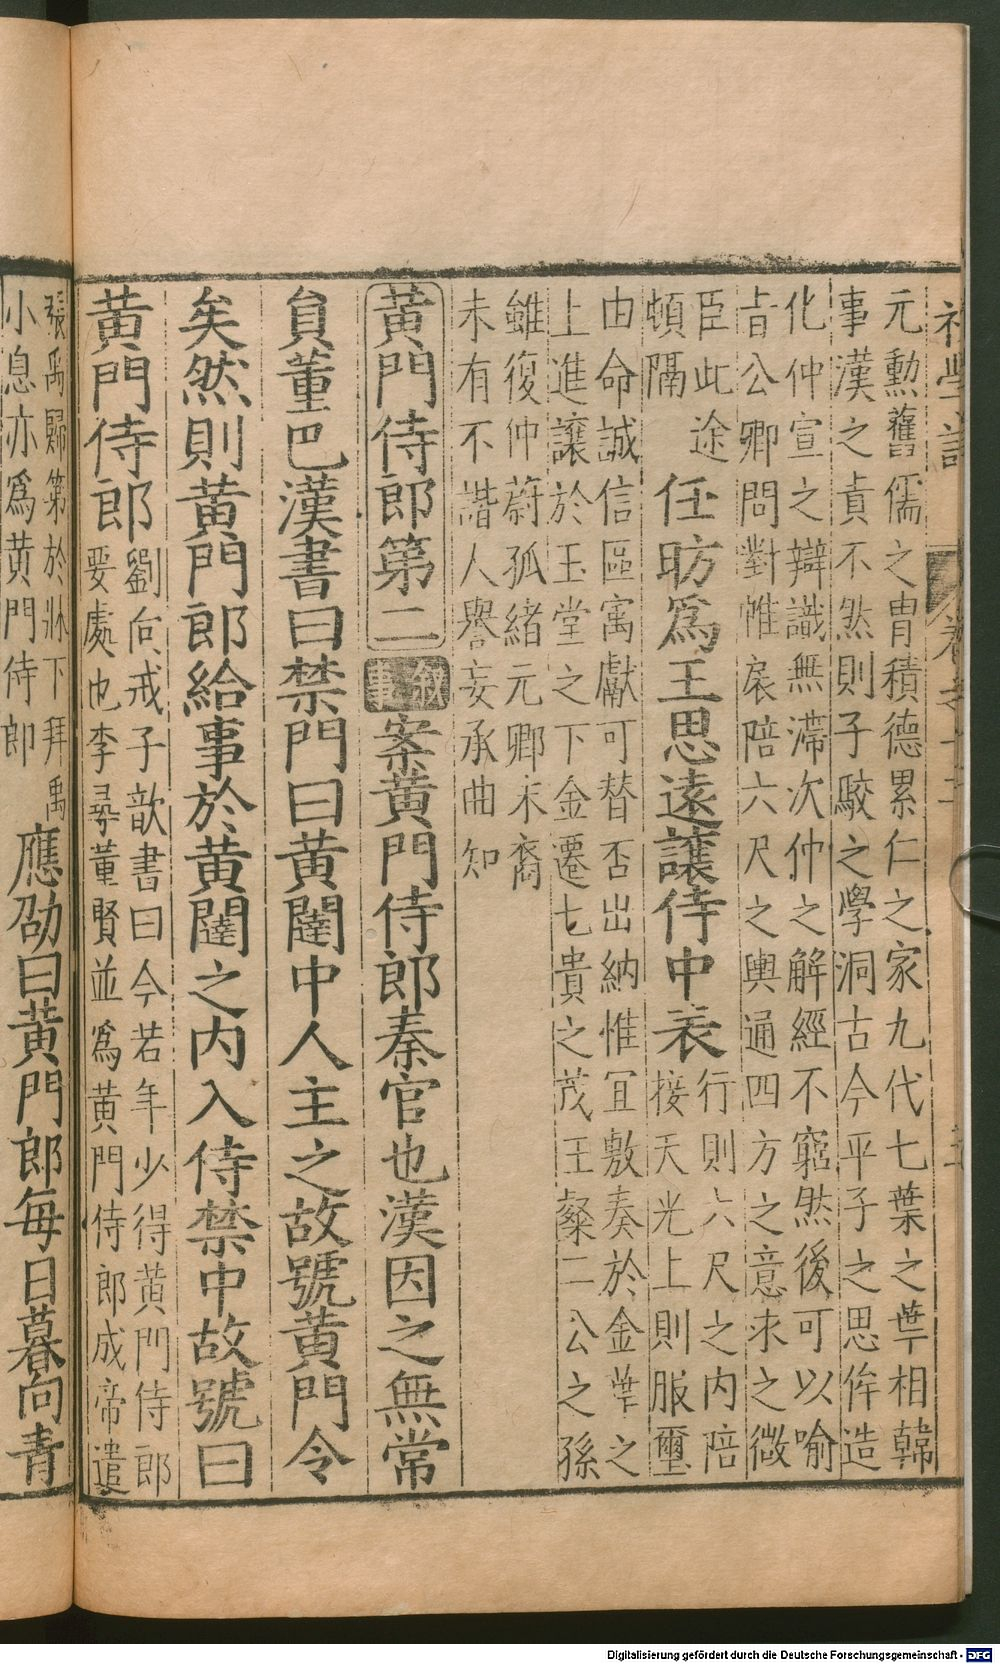 元勳舊儒之胄積德累仁之家九代七葉之華相韓
事漢之貴不然則子駿之學洞古今平子之思侔造
化仲宣之辯識無滯次仲之解經不窮然後可以喻
旨公卿問對帷扆陪六尺之輿通四方之意求之微
臣此途頓隔任昉爲王思遠讓侍中表行則六尺之内陪
接天光上則服璽
由命誠信區寓獻可替否出納惟宜敷奏於金華之
上進讓於玉堂之下金遷七貴之茂王粲二公之孫
雖復仲蔚孤緒元卿末裔
未有不諧人譽妄承曲知
黄門侍郎第二 叙事 案黄門侍郎秦官也漢因之無常
員董巴漢書曰禁門曰黄闥中人主之故號黄門令
矣然則黄門郎給事於黄闥之内入侍禁中故號曰
黄門侍郎劉向戒子歆書曰今若年少得黄門侍郎
要處也李尋董賢並爲黄門侍郎成帝遣
張禹歸第於牀下拜禹
小息亦爲黄門侍郎
應劭曰黄門郎每日暮向青
Digitalisierung gefördert durch die Deutsche Forschungsgemeinschaft - DFG